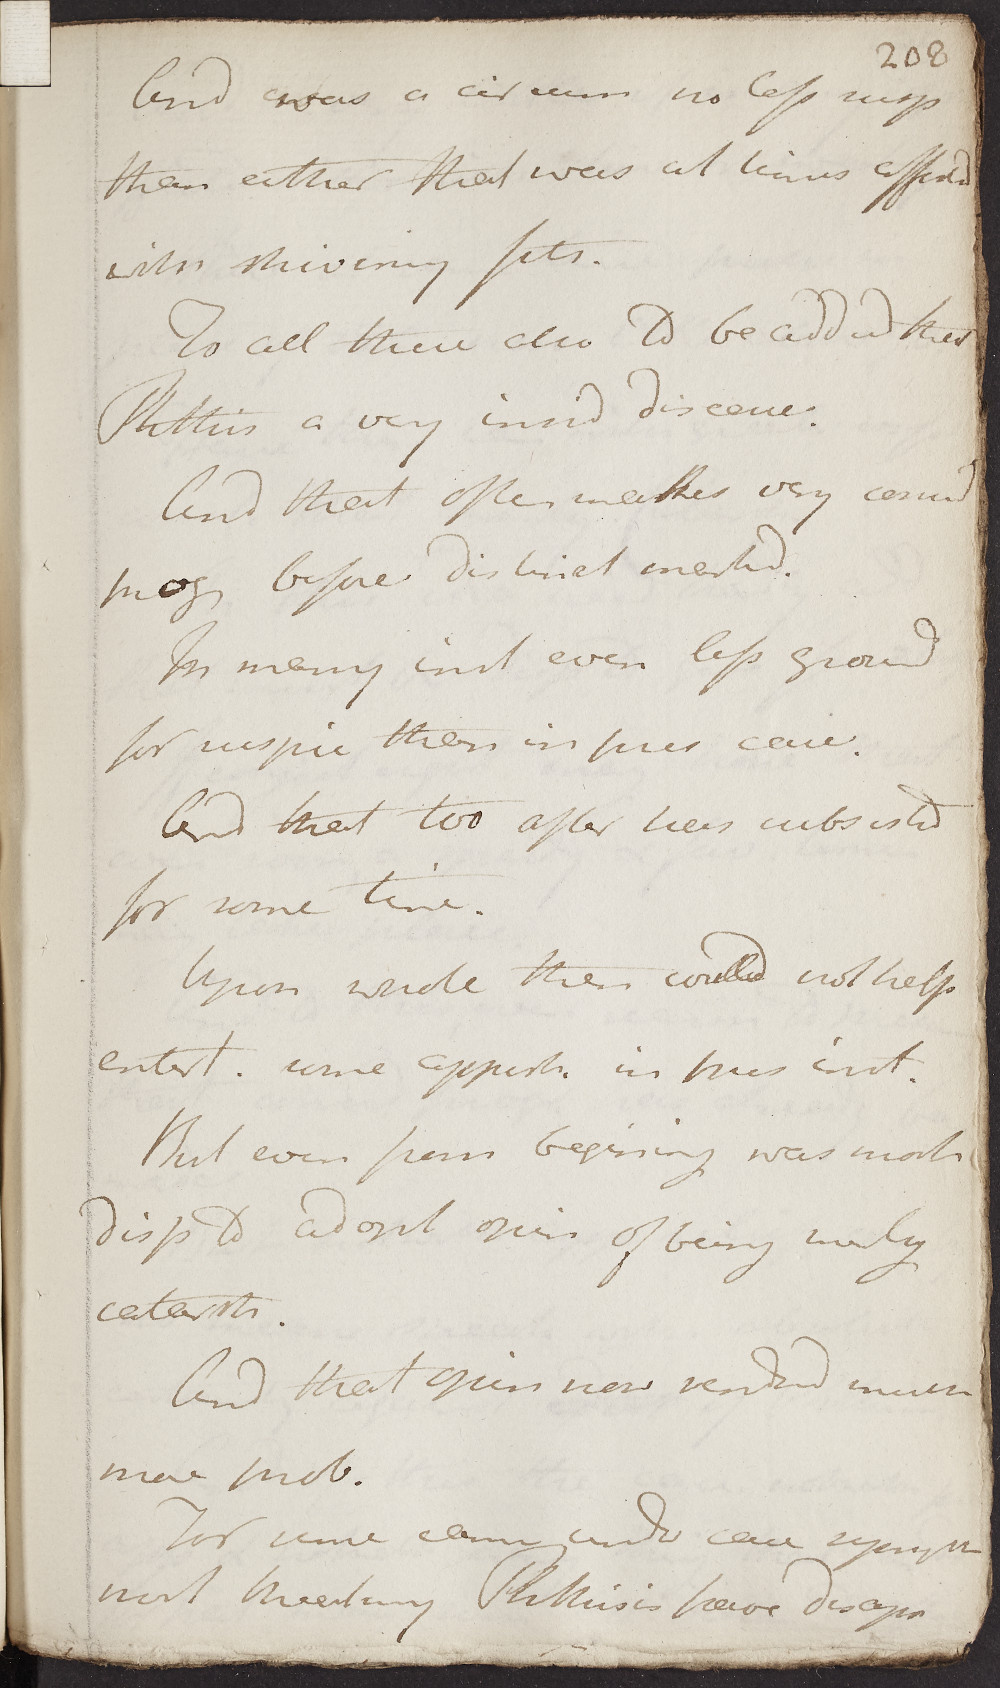 208
And was a circum no less susp
than either that was at times affectd
with shivering fits.
To all these also to be added that
Phthisis a very insid disease.
And that often makes very consid
prog before distinct markd.
In many inst even less ground
for suspic than in pres case.
And that too after has subsistd
for some time.
Upon whole then could not help
entert. some appreh. in pres inst.
But even from begining was most
disp to adopt opin of being merly
catarrh.
And that opin now rendred much
more prob.
For since came under care symptm
most threatning Phthisis have disapp